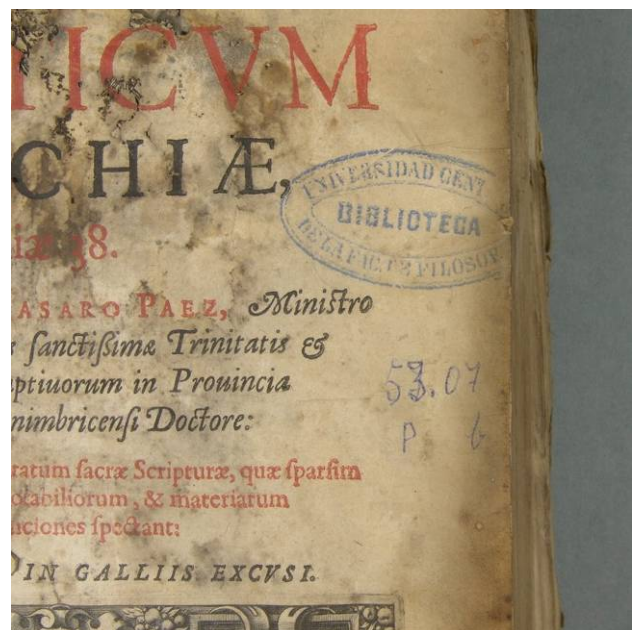 TICVM
CHIÆ,
iæ 38.
ASARO PAEZ, Miniſtro
ſanctiſsimæ Trinitatis &
ptiuorum in Prouincia
nimbricenſi Doctore:
ratum ſacræ Scripturæ, quæ ſparſim
otabiliorum, & materiarum
ciones ſpectant:
IN GALLIIS EXCVSI.
UNIVERSIDAD CENT
BIBLIOTECA
DE LA FAC. DE FILOSOF
53.07
P 6